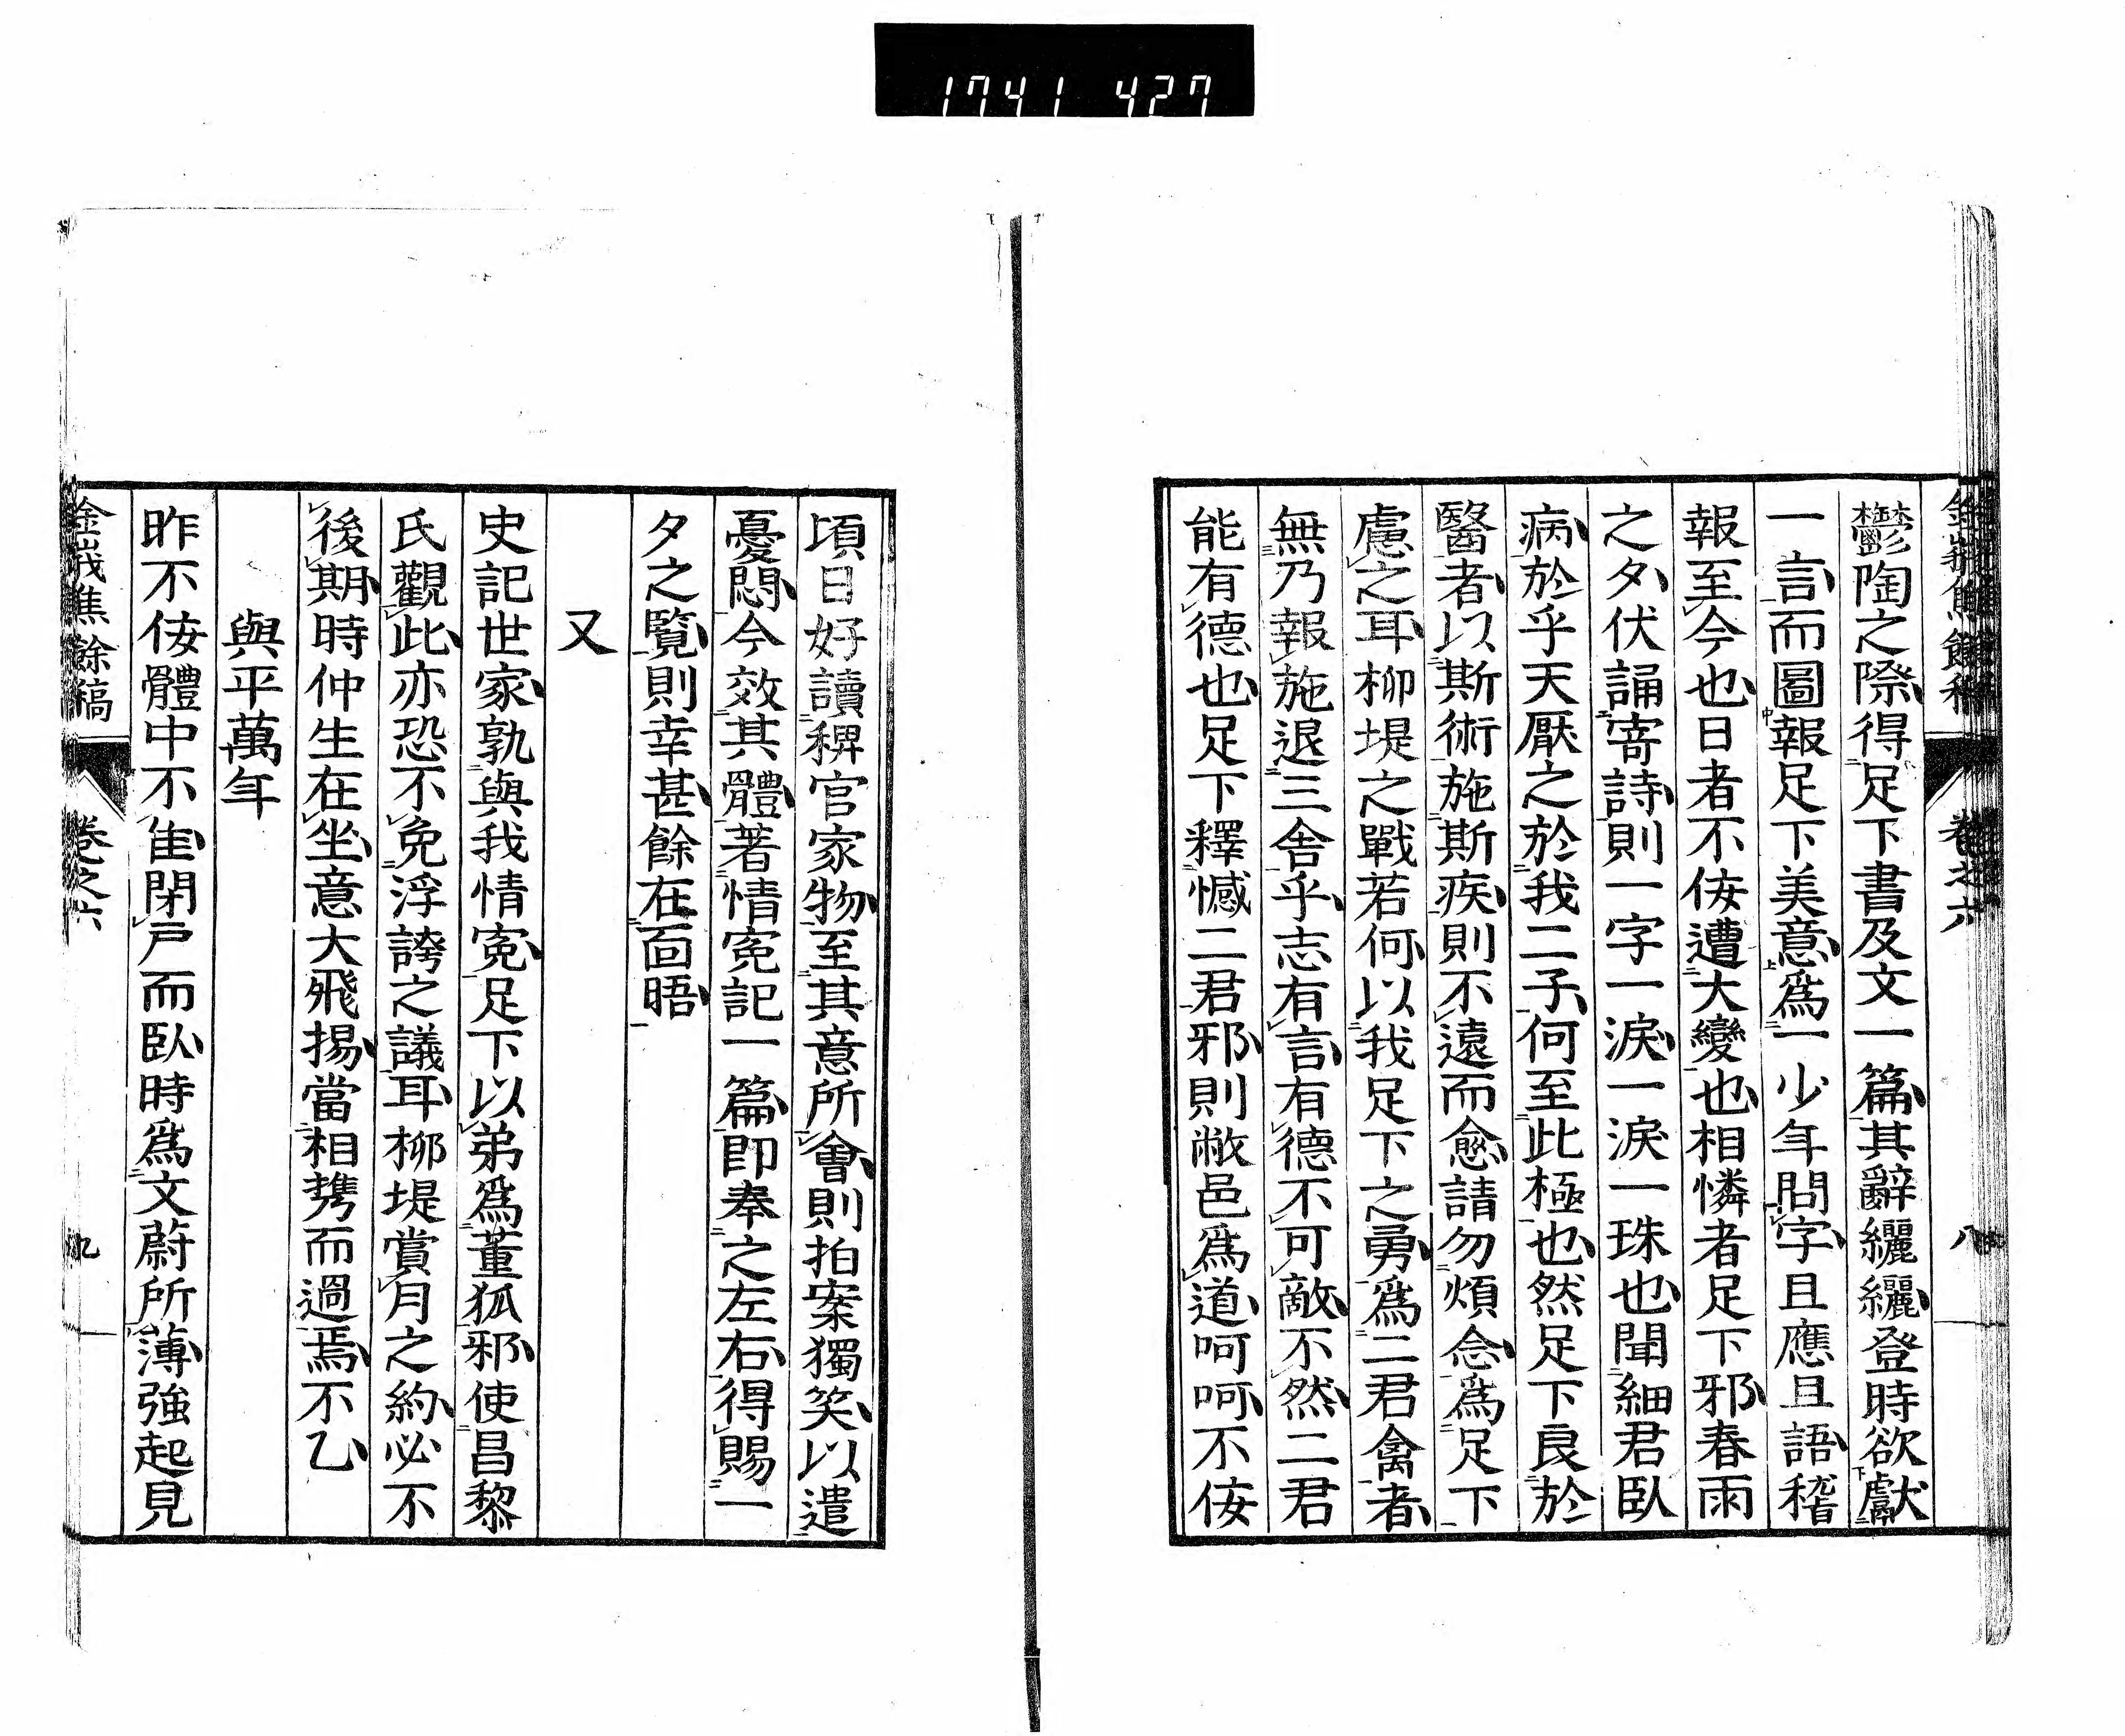 1741 427
金峩焦餘稿 卷之六 八
鬱陶之際得足下書及文一篇其辭纚纚登時欲獻
一言而圖報足下美意爲一少年問字且應且語稽
報至今也日者不侫遭大變也相憐者足下邪春雨
之夕伏誦寄詩則一字一淚一淚一珠也聞細君臥
病於乎天厭之於我二子何至此極也然足下良於
醫者以斯術施斯疾則不遠而愈請勿煩念爲足下
慮之耳柳堤之戰若何以我足下之勇爲二君禽者
無乃報施退三舍乎志有言有德不可敵不然二君
能有德也足下釋憾二君邪則敝邑爲道呵呵不侫
頃日好讀稗官家物至其意所會則拍案獨笑以遣
憂悶今效其體著情寃記一篇即奉之左右得賜一
夕之覽則幸甚餘在面晤
又
史記世家孰與我情寃足下以弟爲董狐邪使昌黎
氏觀此亦恐不免浮誇之議耳柳堤賞月之約必不
後期時仲生在坐意大飛揚當相携而過焉不乙
與平萬年
昨不侫體中不佳閉戸而臥時爲文蔚所薄強起見
金峩焦餘稿 卷之六 九